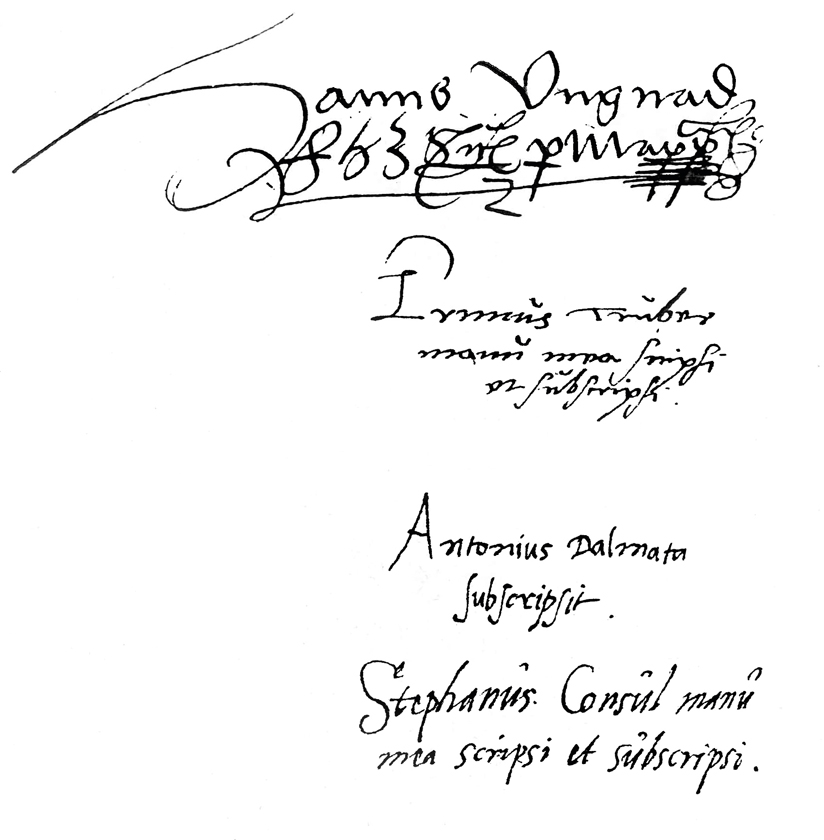 Hanns Vngnad
Primus Truber
manu mea scripsi
et subscripsi.
Antonius Dalmata
subscripsit.
Stephanus Consul manu
mea scripsi et subscripsi.